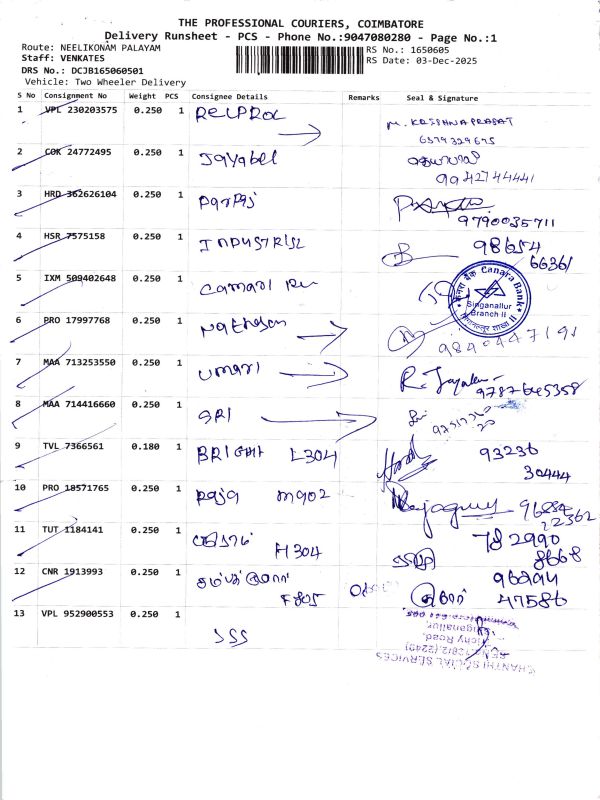 THE PROFESSIONAL COURIERS, COIMBATORE
Delivery Runsheet - PCS - Phone No.:9047080280 - Page No.:1
Route: NEELIKONAM PALAYAM
RS No.: 1650605
Staff: VENKATES
RS Date: 03-Dec-2025
DRS No.: DCJB165060501
Vehicle: Two Wheeler Delivery
S No Consignment No Weight PCS Consignee Details Remarks Seal & Signature
1 VPL 230203575 0.250 1 RECPROL M. KRISHNA PRASAT
6379329675
2 COK 24772495 0.250 1 Jayabel
9942744441
3 HRD 362626104 0.250 1
9790035711
4 HSR 7575158 0.250 1 INDUSTRISL 98654
66361
5 IXM 509402648 0.250 1
Canara Bank
Singanallur
Branch II
6 PRO 17997768 0.250 1 Mathesan
9840447191
7 MAA 713253550 0.250 1 UMARI
8 MAA 714416660 0.250 1 SRI
9 TVL 7366561 0.180 1 BRIGHT L304 93236
30444
10 PRO 18571765 0.250 1 Raja M902 Rajaguru 96884
22362
11 TUT 1184141 0.250 1 H304 782990
8668
12 CNR 1913993 0.250 1 F805
47586
13 VPL 952900553 0.250 1 SSS
SHANTHI SOCIAL SERVICES
Trichy Road,
Singanallur,